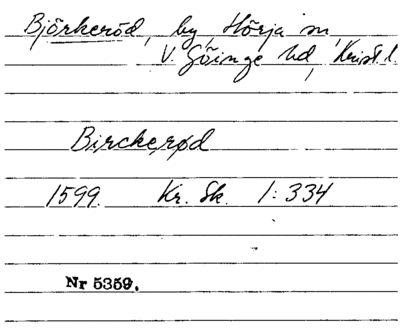 Björkeröd, by, Hörja sn,
V. Göinge hd, Krist. l.
Birckerød
1599. Kr. Sk. 1:334
Nr 5359.